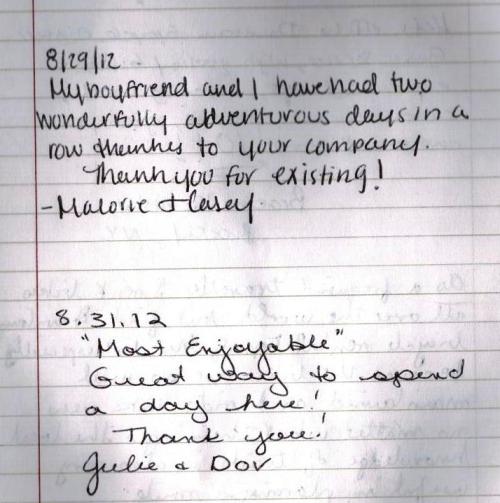 8/29/12
My boyfriend and I have had two
wonderfully adventurous days in a
row thanks to your company.
Thank you for existing!
- Malorie + Casey
8.31.12
"Most Enjoyable"
Great way to spend
a day here!
Thank you!
Julie & Dov